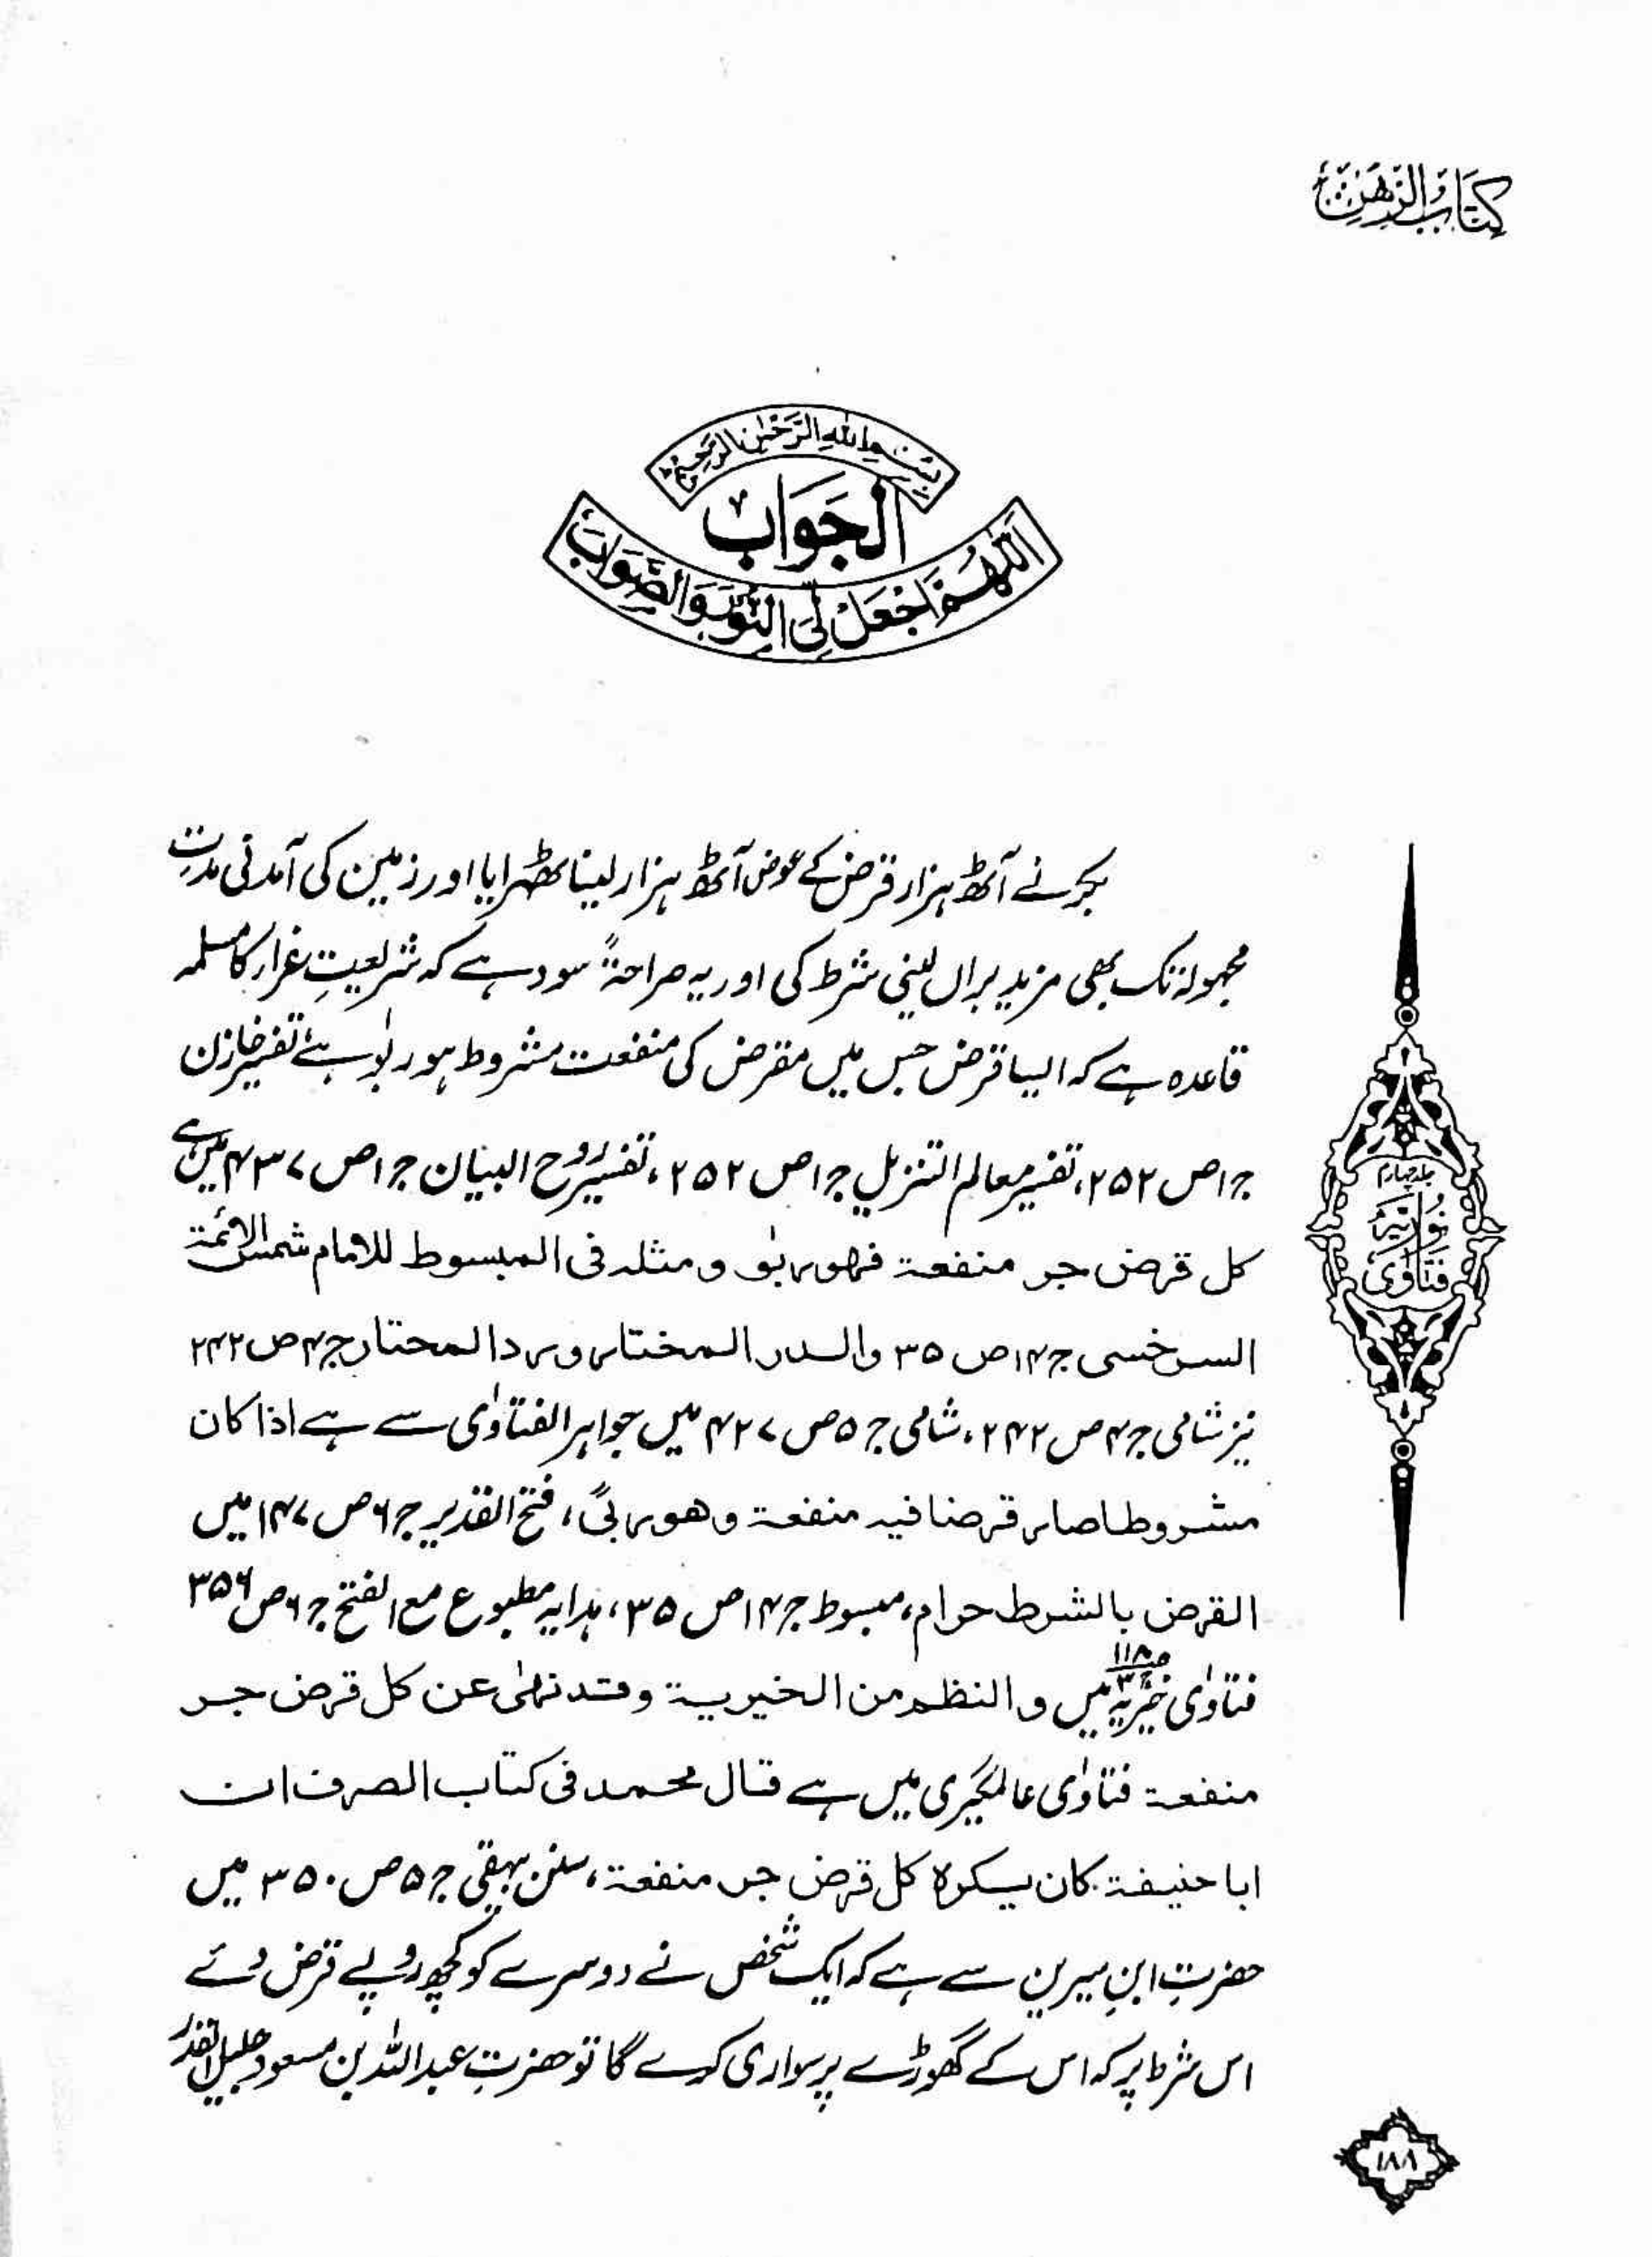 كِتَابُ الرَّهْنِ
بِسْمِ اللهِ الرَّحْمٰنِ الرَّحِيْمِ
اَلْجَوَابُ
اَللّٰهُمَّ اجْعَلْ لِيَ النُّوْرَ وَالصَّوَابَ
بکر نے آٹھ ہزار قرض کے عوض آٹھ ہزار لینا ٹھہرایا اور زمین کی آمدنی مدتِ
مجہولہ تک بھی مزید برآں لینی شرط کی اور یہ صراحۃً سود ہے کہ شریعتِ غرار کا مسلمہ
قاعدہ ہے کہ ایسا قرض جس میں مقرض کی منفعت مشروط ہو ربوٰ ہے، تفسیر خازن
ج ۱ص ۲۵۲، تفسیر معالم التنزیل ج ۱ص ۲۵۲، تفسیر روح البیان ج ۱ص ۴۳۷ میں ہے
كل قرض جر منفعة فهو ربٰو و مثله فى المبسوط للامام شمس الائمة
السرخسى ج ۱۴ص ۳۵ والدر المختار و رد المحتار ج ۴ص ۲۴۲
نیز شامی ج ۴ص ۲۴۲، شامی ج ۵ص ۴۲۷ میں جواہر الفتاوٰی سے ہے اذا كان
مشروطا صار قرضا فيه منفعة و هو ربیً، فتح القدیر ج ۶ص ۱۴۷ میں
القرض بالشرط حرام، مبسوط ج ۱۴ص ۳۵، ہدایہ مطبوع مع الفتح ج ۶ص ۳۵۶
فتاوٰی خیریہ میں و النظم من الخيرية وقد نهٰى عن كل قرض جر
منفعة فتاوٰی عالمگیری میں ہے قال محمد فى كتاب الصرف ان
ابا حنيفة كان يكره كل قرض جر منفعة، سنن بیہقی ج ۵ص ۳۵۰ میں
حضرتِ ابنِ سیرین سے ہے کہ ایک شخص نے دوسرے کو کچھ روپے قرض دئے
اس شرط پر کہ اس کے گھوڑے پر سواری کرے گا تو حضرتِ عبداللہ بن مسعود جلیل القدر
جلد چہارم
فَتَاوٰی نُوْرِیَّہ
۱۸۸